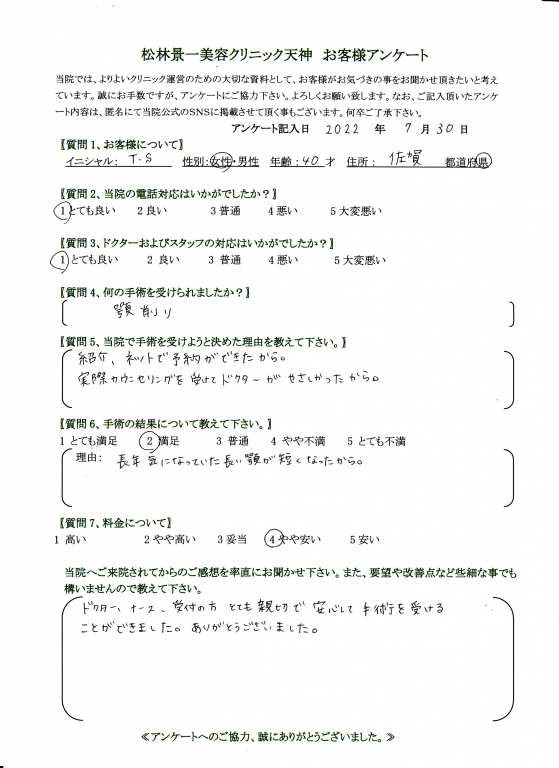 松林景一美容クリニック天神 お客様アンケート
当院では、よりよいクリニック運営のための大切な資料として、お客様がお気づきの事をお聞かせ頂きたいと考え
ています。誠にお手数ですが、アンケートにご協力下さい。よろしくお願い致します。なお、ご記入頂いたアンケ
ート内容は、匿名にて当院公式のSNSに掲載させて頂く事もございます。何卒ご了承下さい。
アンケート記入日 2022 年 7 月 30 日
【質問1、お客様について】
イニシャル: T.S 性別:女性・男性 年齢:40 才 住所: 佐賀 都道府県
【質問2、当院の電話対応はいかがでしたか？】
1とても良い 2 良い 3 普通 4 悪い 5 大変悪い
【質問3、ドクターおよびスタッフの対応はいかがでしたか？】
1 とても良い 2 良い 3 普通 4 悪い 5 大変悪い
【質問4、何の手術を受けられましたか？】
顎削り
【質問5、当院で手術を受けようと決めた理由を教えて下さい。】
紹介、ネットで予約ができたから。
実際カウンセリングを受けてドクターがやさしかったから。
【質問6、手術の結果について教えて下さい。】
1 とても満足 2 満足 3 普通 4 やや不満 5 とても不満
理由: 長年気になっていた長い顎が短くなったから。
【質問7、料金について】
1 高い 2 やや高い 3 妥当 4 やや安い 5 安い
当院へご来院されてからのご感想を率直にお聞かせ下さい。また、要望や改善点など些細な事でも
構いませんので教えて下さい。
ドクター、ナース、受付の方 とても親切で 安心して 手術を受ける
ことができました。ありがとうございました。
≪アンケートへのご協力、誠にありがとうございました。≫